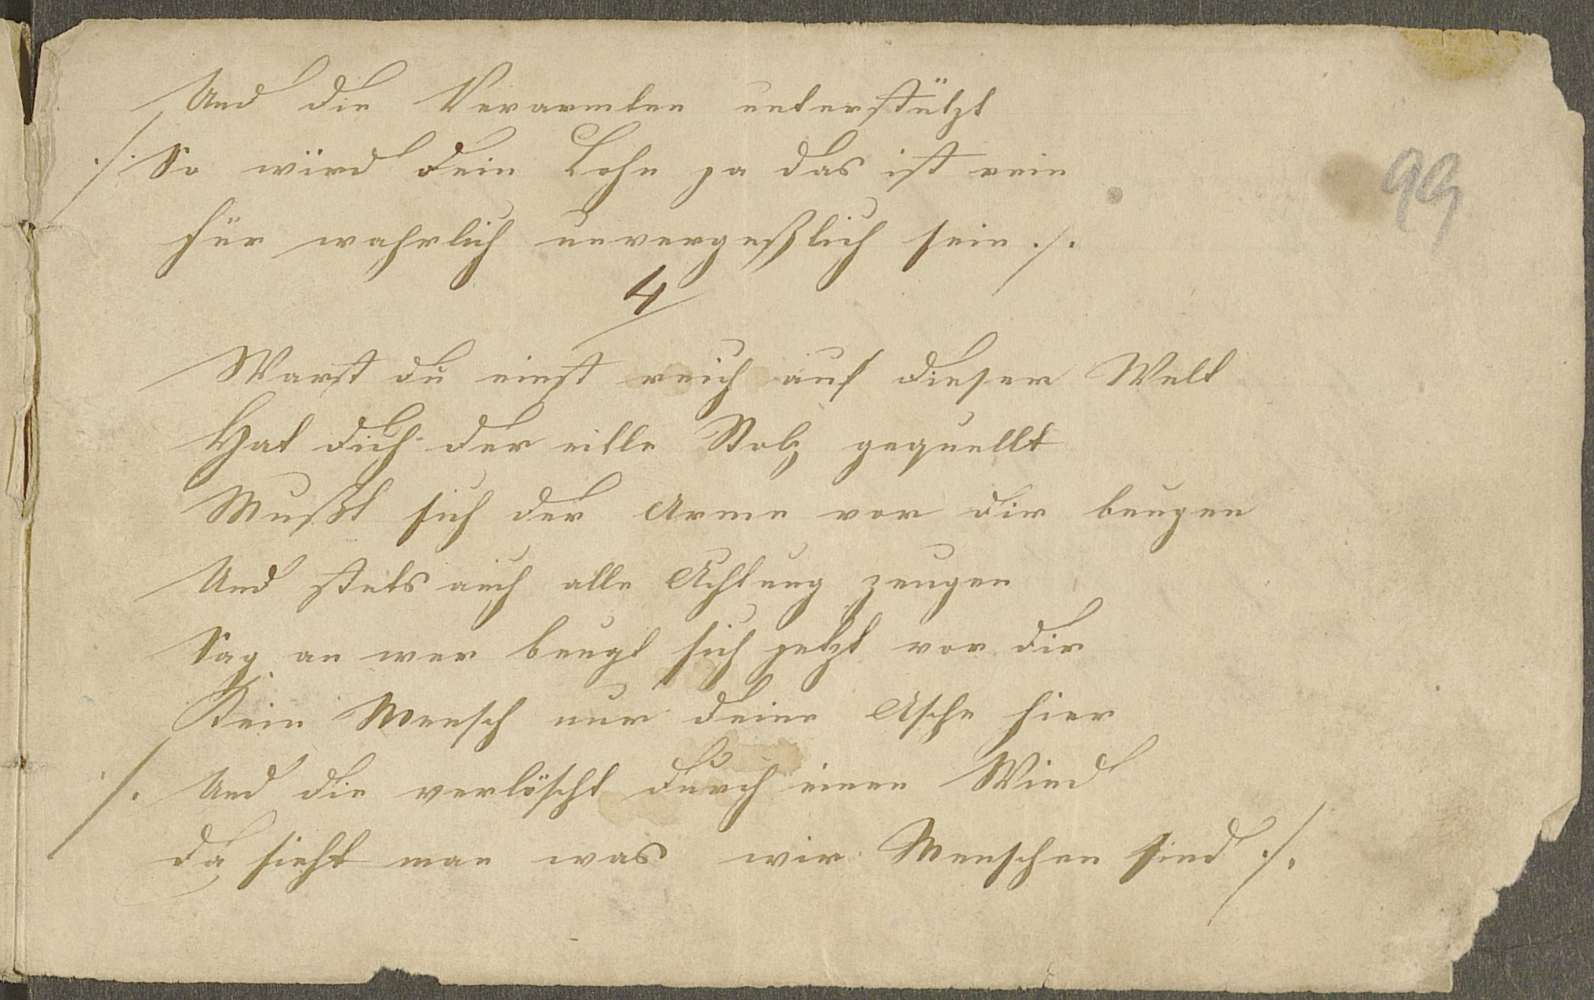 Und die Verarmten unterstützt
./. So wird dein Lohn ja das ist rein
für wahrlich unvergeßlich sein ./.
99
4
Warst du einst reich auf dieser Welt
Hat dich der eitle Stolz gequellt
Mußt sich der Arme vor dir beugen
Und stets auch alle Achtung zeugen
Sag an wer beugt sich jetzt vor dir
Kein Mensch nur deine Asche hier
./. Und die verlöscht durch einen Wind
da sieht man was wir Menschen sind ./.